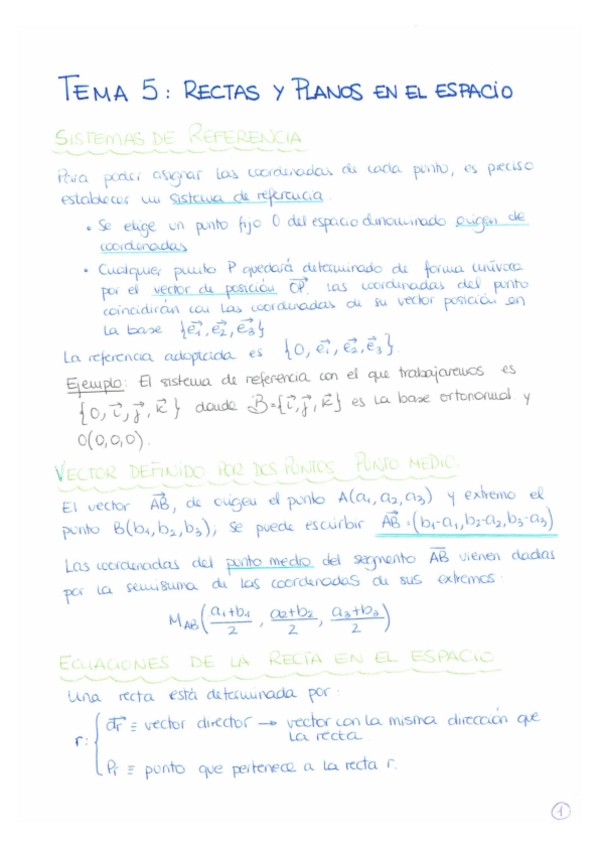 TEMA 5: RECTAS Y PLANOS EN EL ESPACIO
SISTEMAS DE REFERENCIA
Para poder asignar las coordenadas de cada punto, es preciso
establecer un sistema de referencia.
• Se elige un punto fijo O del espacio denominado origen de
coordenadas
• Cualquier punto P quedará determinado de forma unívoca
por el vector de posición \(\vec{OP}\). Las coordenadas del punto
coincidirán con las coordenadas de su vector posición en
la base {\(\vec{e_1}, \vec{e_2}, \vec{e_3}\)}
La referencia adoptada es {O, \(\vec{e_1}, \vec{e_2}, \vec{e_3}\)}.
Ejemplo: El sistema de referencia con el que trabajaremos es
{O, \(\vec{i}, \vec{j}, \vec{k}\)} donde B={\(\vec{i}, \vec{j}, \vec{k}\)} es la base ortonormal y
O(0,0,0).
VECTOR DEFINIDO POR DOS PUNTOS. PUNTO MEDIO.
El vector \(\vec{AB}\), de origen el punto A(a₁,a₂,a₃) y extremo el
punto B(b₁,b₂,b₃); se puede escribir \(\vec{AB}\)=(b₁-a₁,b₂-a₂,b₃-a₃)
Las coordenadas del punto medio del segmento \(\overline{AB}\) vienen dadas
por la semisuma de las coordenadas de sus extremos:
\(M_{AB}\left(\frac{a_1+b_1}{2}, \frac{a_2+b_2}{2}, \frac{a_3+b_3}{2}\right)\)
ECUACIONES DE LA RECTA EN EL ESPACIO
Una recta está determinada por:
r: { \(\vec{dr}\) ≡ vector director → vector con la misma dirección que
la recta.
Pr ≡ punto que pertenece a la recta r.
1